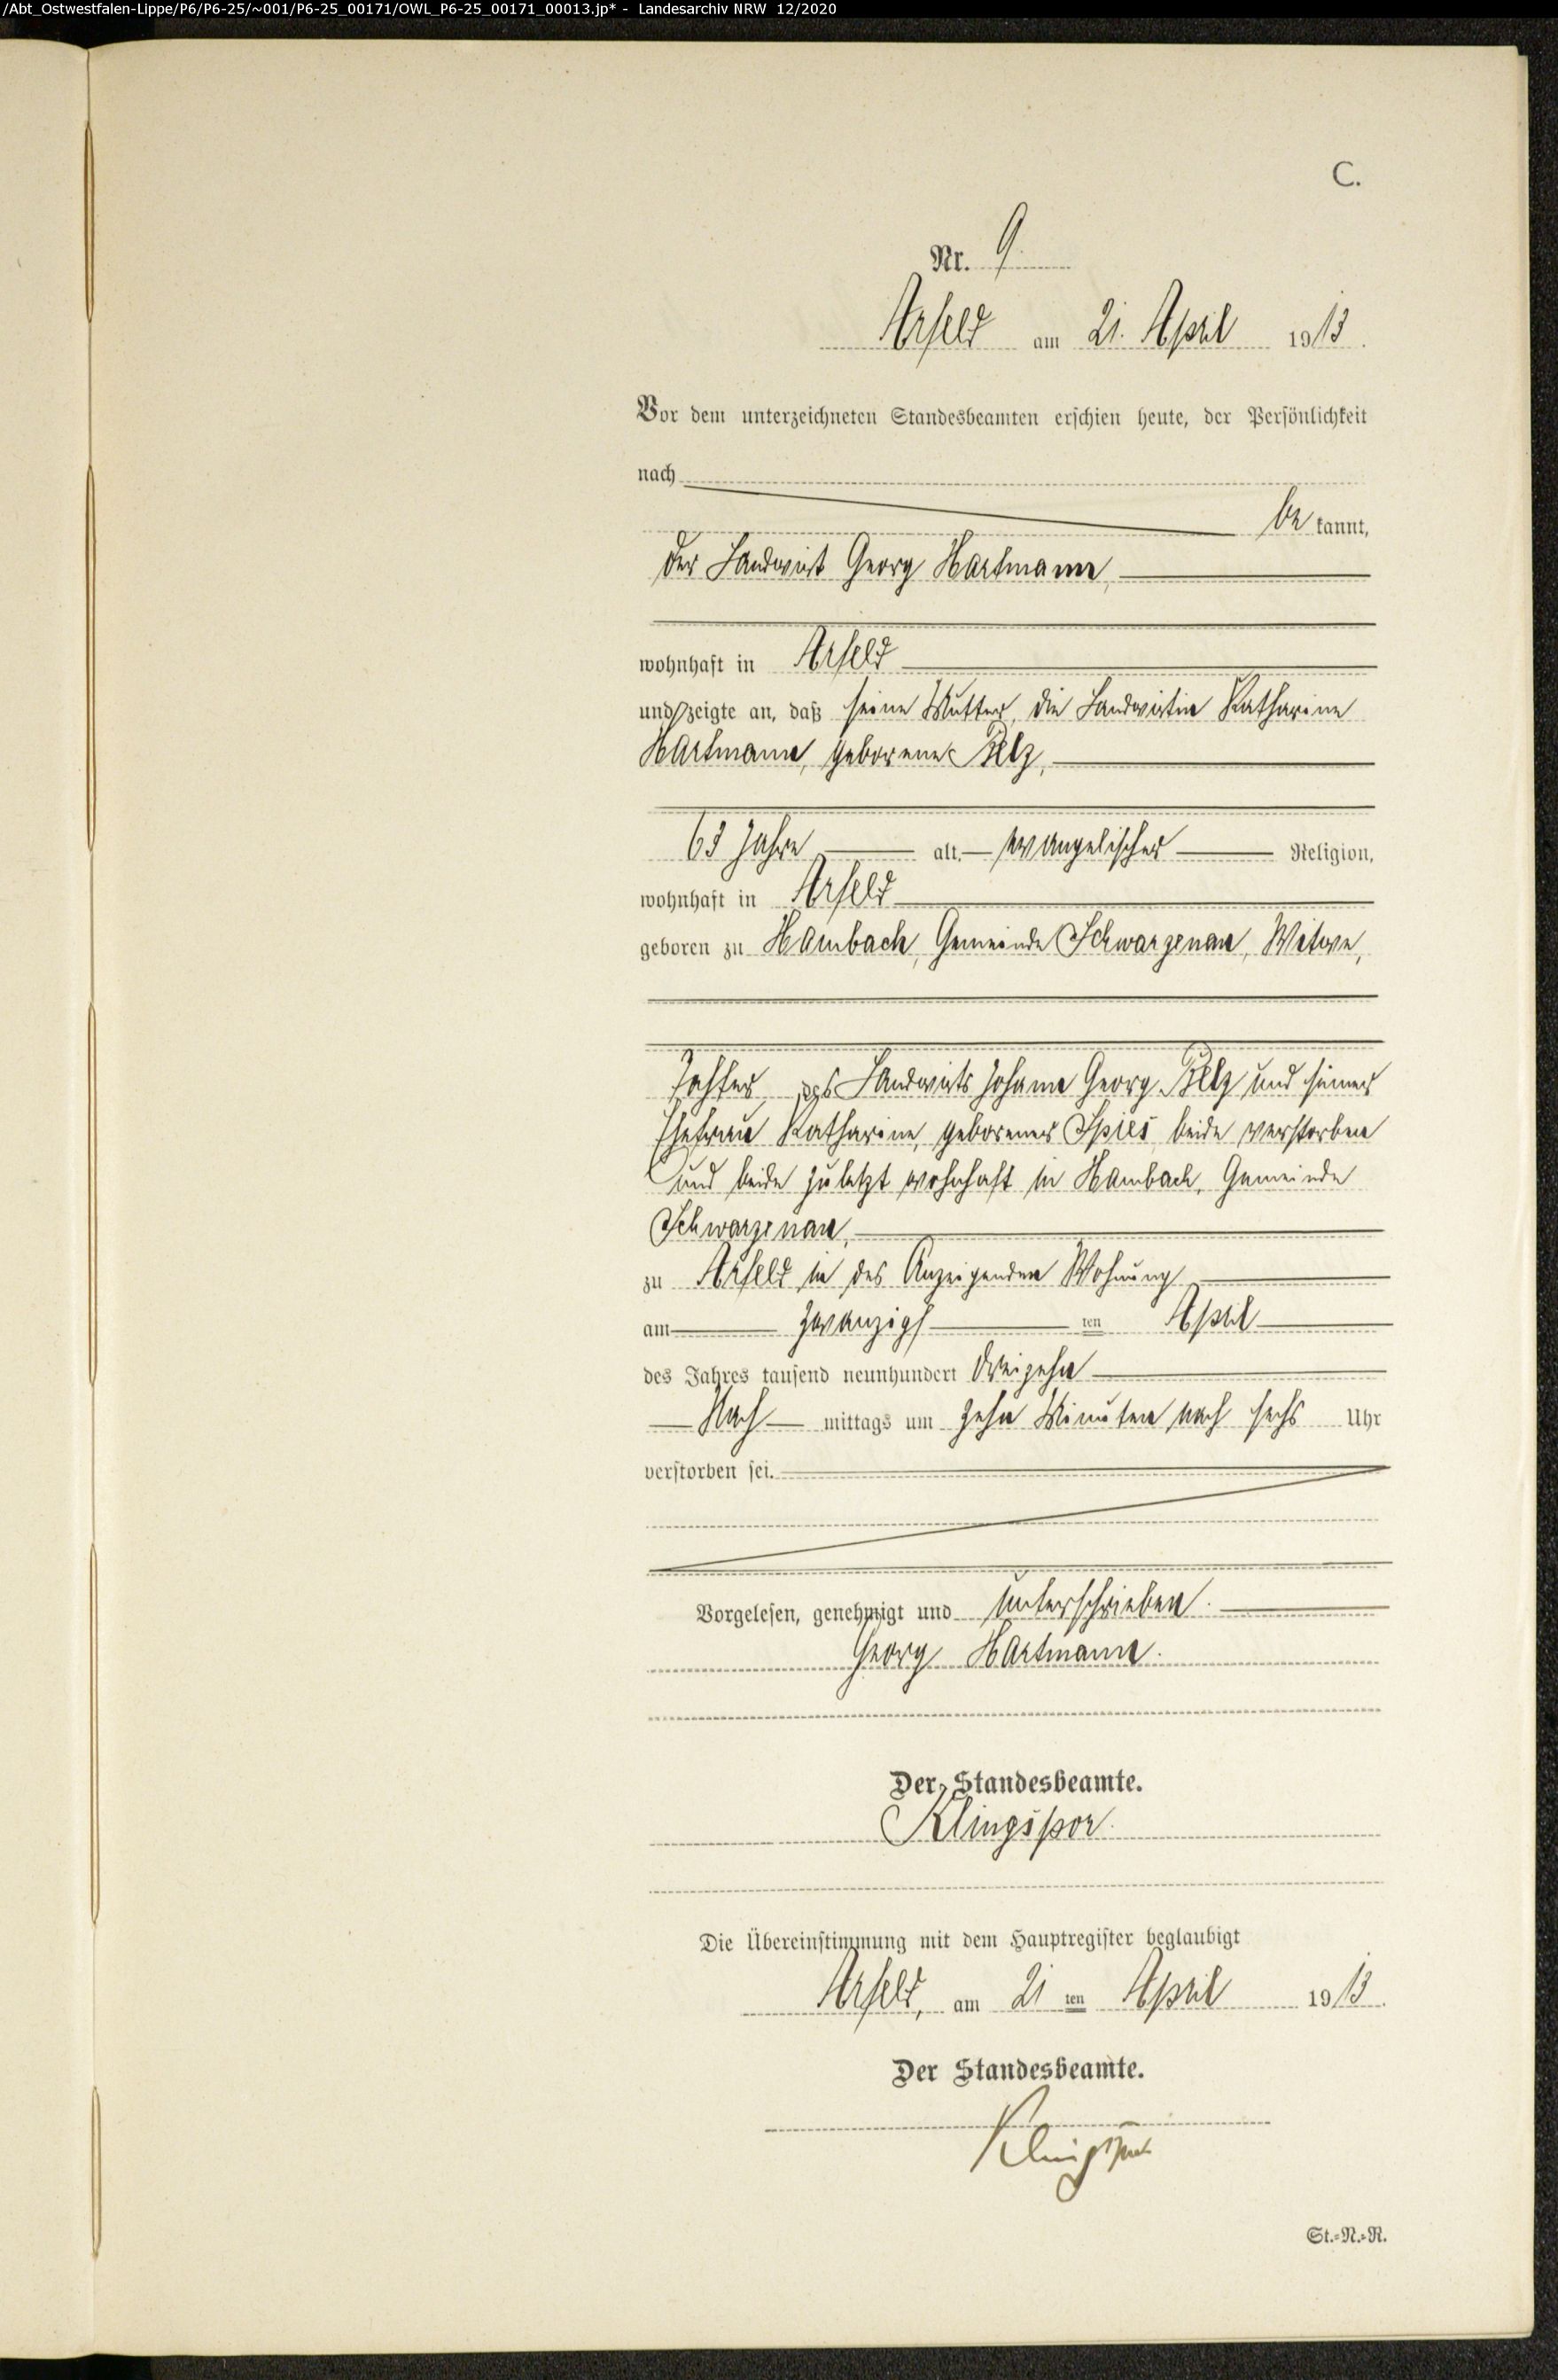 /Abt_Ostwestfalen-Lippe/P6/P6-25/~001/P6-25_00171/OWL_P6-25_00171_00013.jp* - Landesarchiv NRW 12/2020
C.
Nr. 9
Arfeld am 21. April 1913.
Vor dem unterzeichneten Standesbeamten erschien heute, der Persönlichkeit
nach
be kannt,
der Landwirt Georg Hartmann,
wohnhaft in Arfeld
und zeigte an, daß seine Mutter, die Landwirtin Katharine
Hartmann, geborene Pelz,
63 Jahre alt, evangelischer Religion,
wohnhaft in Arfeld
geboren zu Hambach, Gemeinde Schwarzenau, Witwe,
Tochter des Landwirts Johann Georg Pelz und seiner
Ehefrau Katharine, geborener Spies beide verstorben
und beide zuletzt wohnhaft in Hambach, Gemeinde
Schwarzenau,
zu Arfeld in des Anzeigenden Wohnung
am zwanzigsten April
des Jahres tausend neunhundert dreizehn
Nach mittags um zehn Minuten nach sechs Uhr
verstorben sei.
Vorgelesen, genehmigt und unterschrieben.
Georg Hartmann.
Der Standesbeamte.
Klingspor.
Die Übereinstimmung mit dem Hauptregister beglaubigt
Arfeld, am 21 ten April 1913.
Der Standesbeamte.
Klingspor
St.=N.=R.